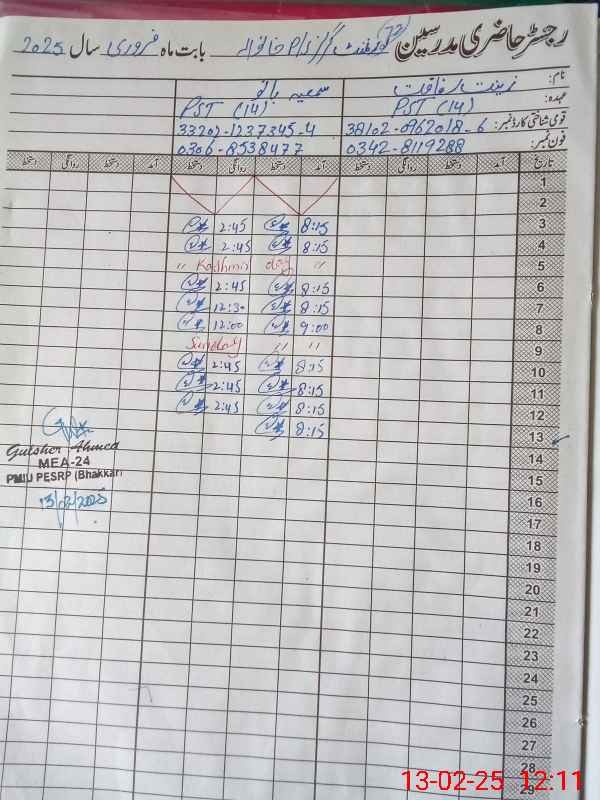 رجسٹر حاضری مدرسین (72) گورنمنٹ گرلز P/S خانوالہ بابت ماہ فروری سال 2025
نام: زینت رفاقت سمعیہ بانو
عہدہ: PST (14) PST (14)
قومی شناختی کارڈ نمبر: 38102-0962018-6 33202-1237345-4
فون نمبر: 0342-8119288 0306-8538477
تاریخ آمد دستخط روانگی دستخط آمد دستخط روانگی دستخط آمد دستخط روانگی دستخط
1
2
3 8:15 2:45
4 8:15 2:45
5 " Kashmir day "
6 8:15 2:45
7 8:15 12:30
8 9:00 12:00
9 Sunday " "
10 8:15 2:45
11 8:15 2:45
12 8:15 2:45
13 8:15
14
15
16
17
18
19
20
21
22
23
24
25
26
27
28
29
Gulsher Ahmed
MEA-24
PMIU PESRP (Bhakkar)
13/02/2025
13-02-25 12:11